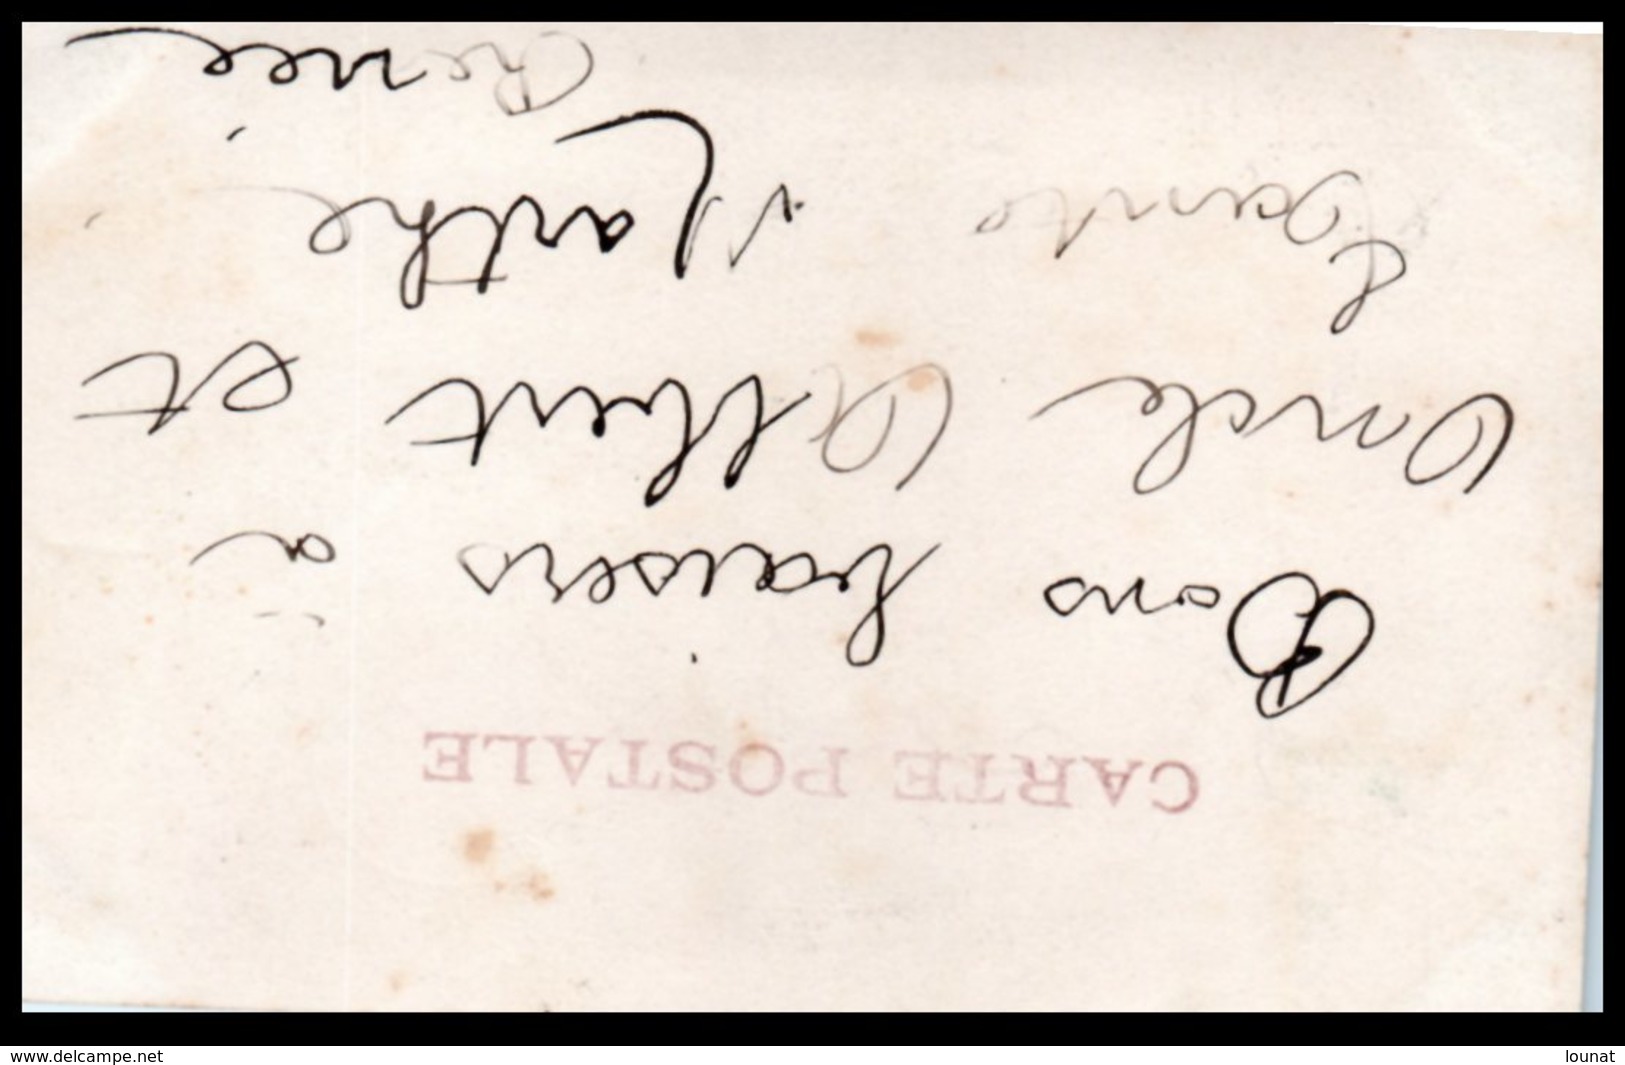 CARTE POSTALE
Bons baisers à
Oncle Albert et
Tante Marthe
Renée
www.delcampe.net
lounat